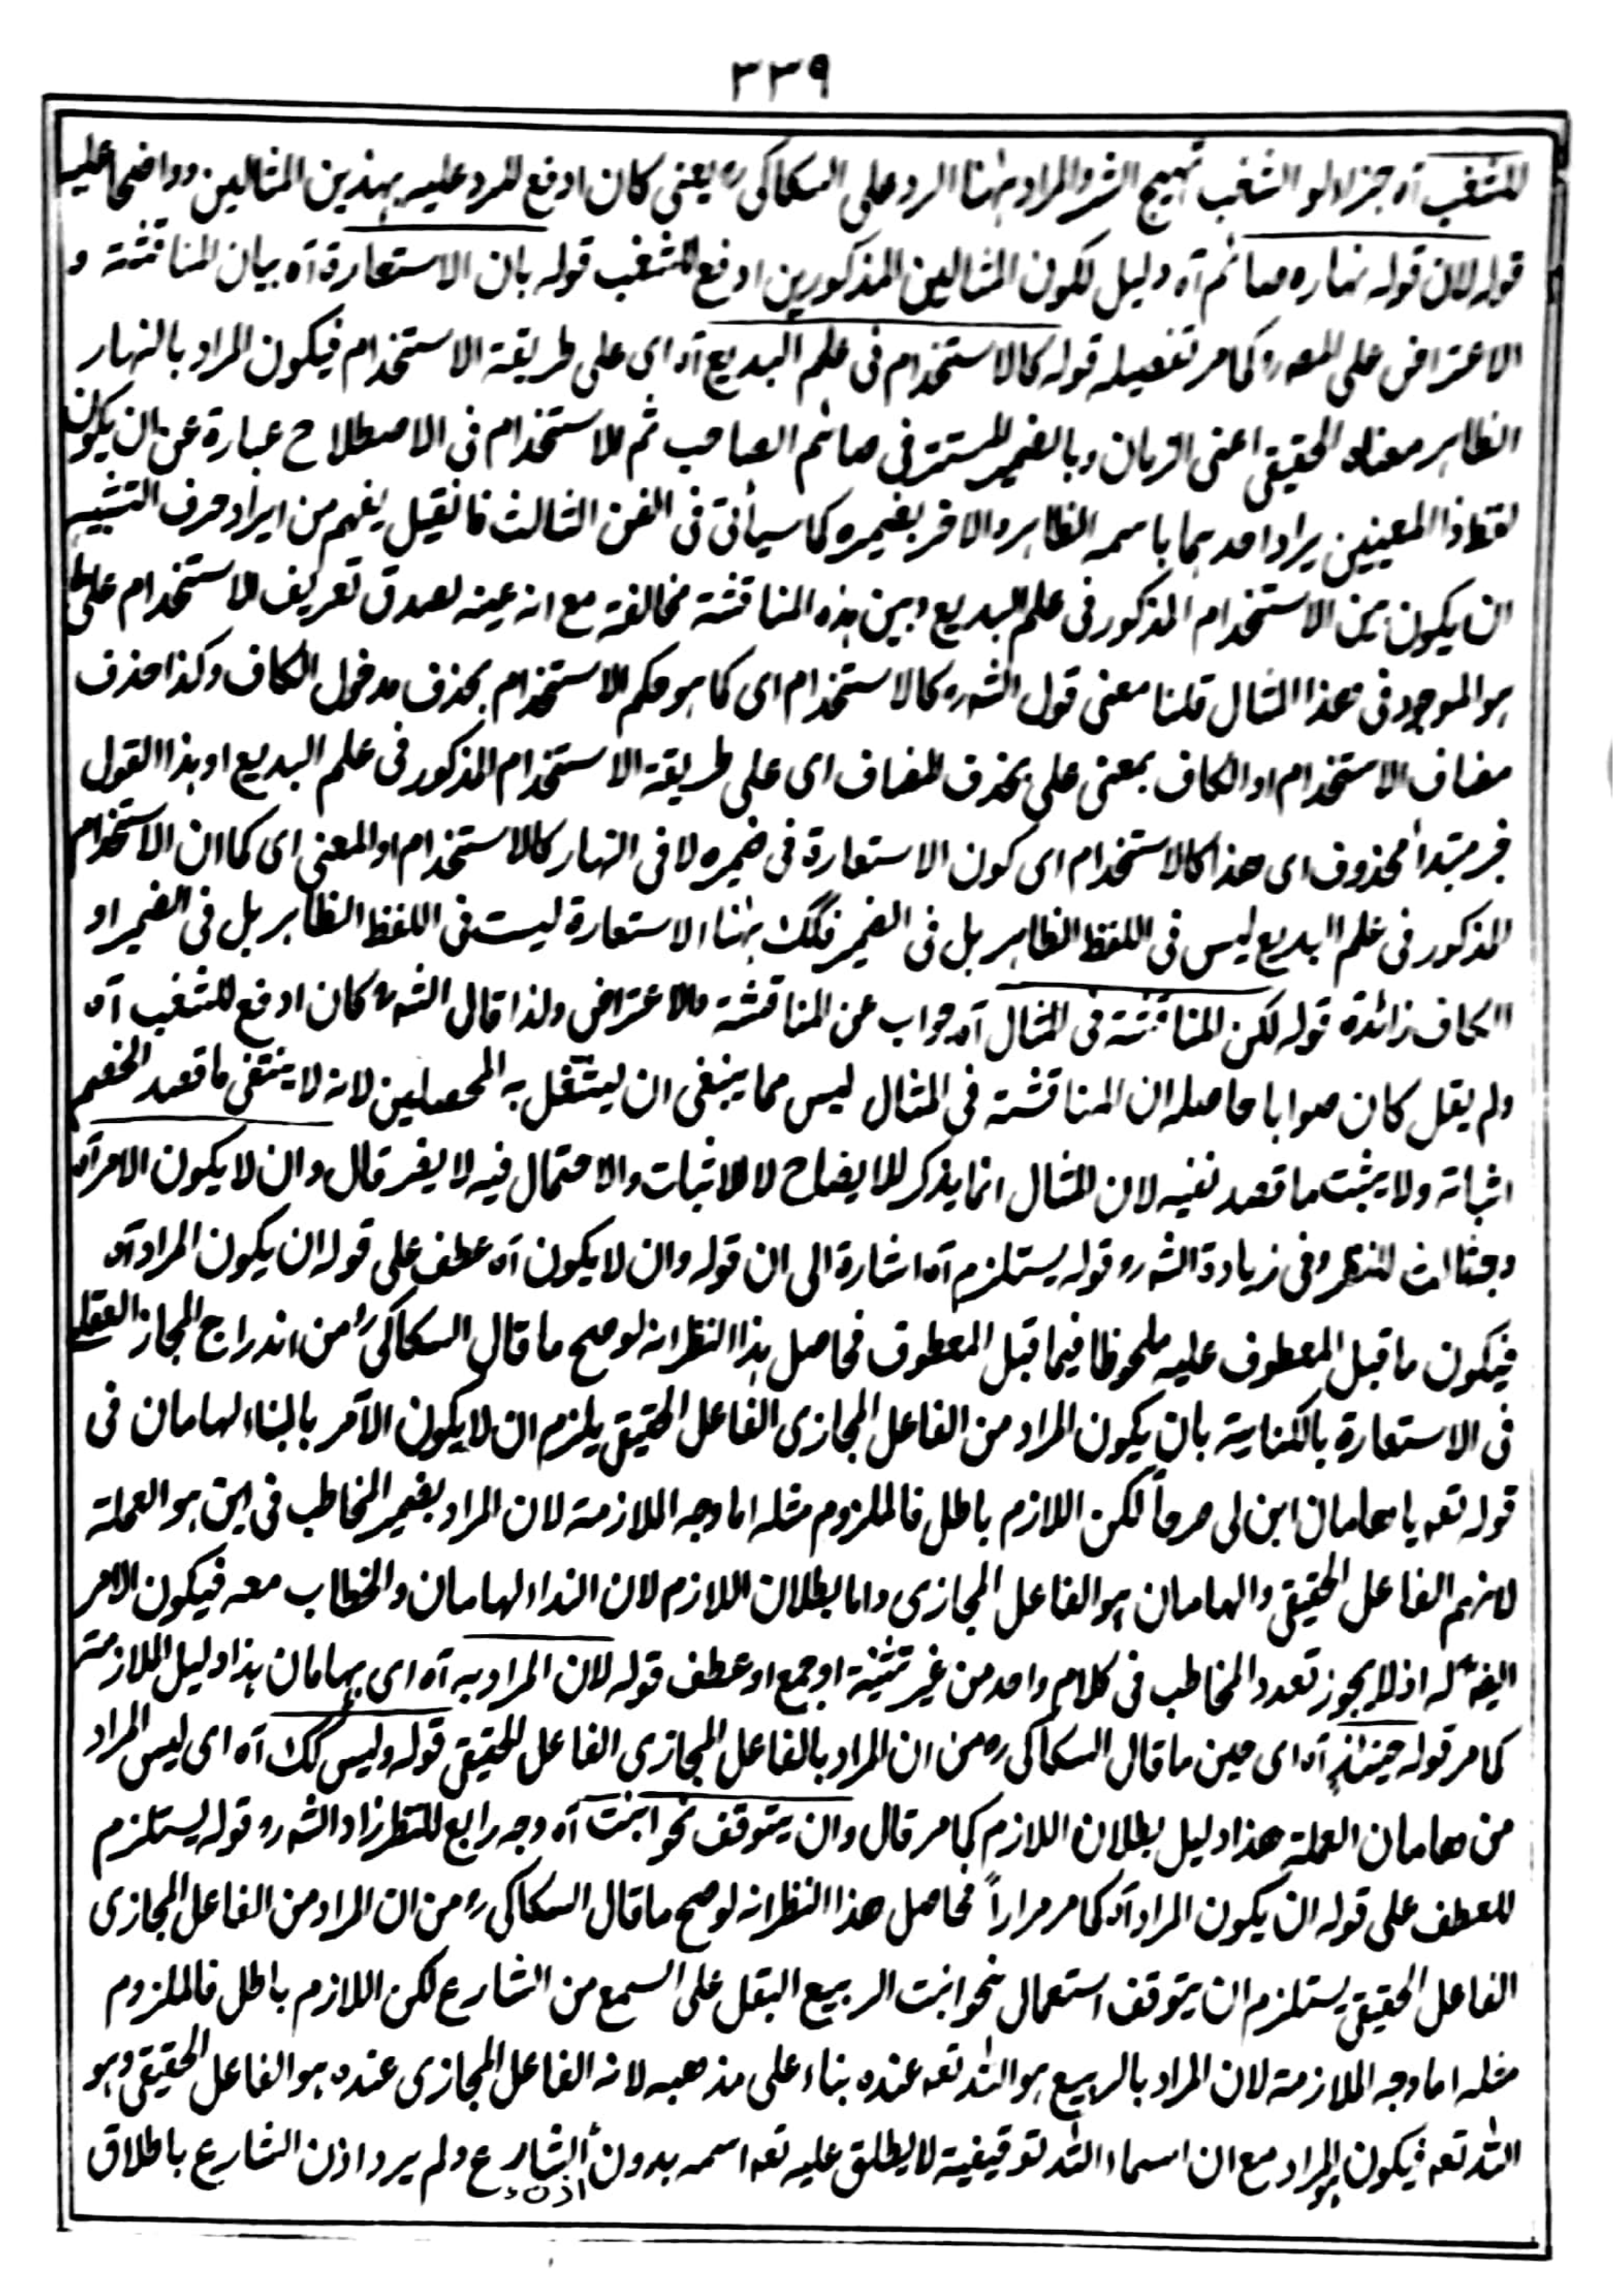 ٣٣٩
للشغب آه جزاء لو الشغب تهيج الشر والمراد ههنا الرد على السكاكى رح يعنى كان ادفع للرد عليه بهذين المثالين وواضحا عليه
قوله لان قوله نهاره صائم آه دليل لكون المثالين المذكورين ادفع للشغب قوله بان الاستعارة آه بيان المناقشة و
الاعتراض على المص رح كما مر تفصيله قوله كالاستخدام فى علم البديع آه اى على طريقة الاستخدام فيكون المراد بالنهار
الظاهر معناه الحقيقى اعنى الزمان وبالضمير المستتر فى صائم الصاحب ثم الاستخدام فى الاصطلاح عبارة عن ان يكون
لفظ ذا المعنيين يراد احدهما باسمه الظاهر والاخر بضميره كما سيأتى فى الفن الثالث فانقيل يفهم من ايراد حرف التشبيه
ان يكون بين الاستخدام المذكور فى علم البديع وبين هذه المناقشة مخالفة مع انه عينه لصدق تعريف الاستخدام على ما
هو الموجود فى هذا المثال قلنا معنى قول الش رح كالاستخدام اى كما هو حكم الاستخدام بحذف مدخول الكاف وكذا حذف
مضاف الاستخدام او الكاف بمعنى على بحذف المضاف اى على طريقة الاستخدام المذكور فى علم البديع او هذا القول
خبر مبتدأ محذوف اى هذا كالاستخدام اى كون الاستعارة فى ضميره لا فى النهار كالاستخدام او المعنى اى كما ان الاستخدام
المذكور فى علم البديع ليس فى اللفظ الظاهر بل فى الضمير فكك ههنا الاستعارة ليست فى اللفظ الظاهر بل فى الضمير او
الكاف زائدة قوله لكن المناقشة فى المثال آه جواب عن المناقشة والاعتراض ولذا قال الش رح كان ادفع للشغب آه
ولم يقل كان صوابا حاصله ان المناقشة فى المثال ليس مما ينبغى ان يشتغل به المحصلين لانه لا ينتفى ما قصد الخصم
اثباته ولا يثبت ما قصد نفيه لان المثال انما يذكر للايضاح لا للاثبات والاحتمال فيه لا يضر قال وان لا يكون الامر آه
وجه ثالث للنظر وفى زيادة الش رح وقوله يستلزم آه اشارة الى ان قوله وان لا يكون آه عطف على قوله ان يكون المراد آه
فيكون ما قبل المعطوف عليه ملحوظا فيما قبل المعطوف فحاصل هذا النظر انه لو صح ما قال السكاكى رح من اندراج المجاز العقلى
فى الاستعارة بالكناية بان يكون المراد من الفاعل المجازى الفاعل الحقيقى يلزم ان لا يكون الآمر بالبناء لهامان فى
قوله تعه يا هامان ابن لى صرحاً لكن اللازم باطل فالملزوم مثله اما وجه اللازمة لان المراد بضمير المخاطب فى ابن هو العملة
لانهم الفاعل الحقيقى والهامان هو الفاعل المجازى واما بطلان اللازم لان النداء لهامان والخطاب معه فيكون الامر
ايضا له اذ لا يجوز تعدد المخاطب فى كلام واحد من غير تثنية او جمع او عطف قوله لان المراد به آه اى بهامان هذا دليل الملازمة
كما مر قوله حينئذٍ آه اى حين ما قال السكاكى رح من ان المراد بالفاعل المجازى الفاعل الحقيقى قوله وليس كك آه اى ليس المراد
من هامان العملة هذا دليل بطلان اللازم كما مر قال وان يتوقف نحو انبت آه وجه رابع للنظر زاد الش رح وقوله يستلزم
للعطف على قوله ان يكون المراد آه كما مر مراراً فحاصل هذا النظر انه لو صح ما قال السكاكى رح من ان المراد من الفاعل المجازى
الفاعل الحقيقى يستلزم ان يتوقف استعمال نحو انبت الربيع البقل على السمع من الشارع لكن اللازم باطل فالملزوم
مثله اما وجه الملازمة لان المراد بالربيع هو الله تعه عنده بناء على مذهبه لانه الفاعل المجازى عنده هو الفاعل الحقيقى وهو
الله تعه فيكون هو المراد مع ان اسماء الله توقيفية لا يطلق عليه تعه اسمه بدون اذن الشارع ولم يرد اذن الشارع باطلاق